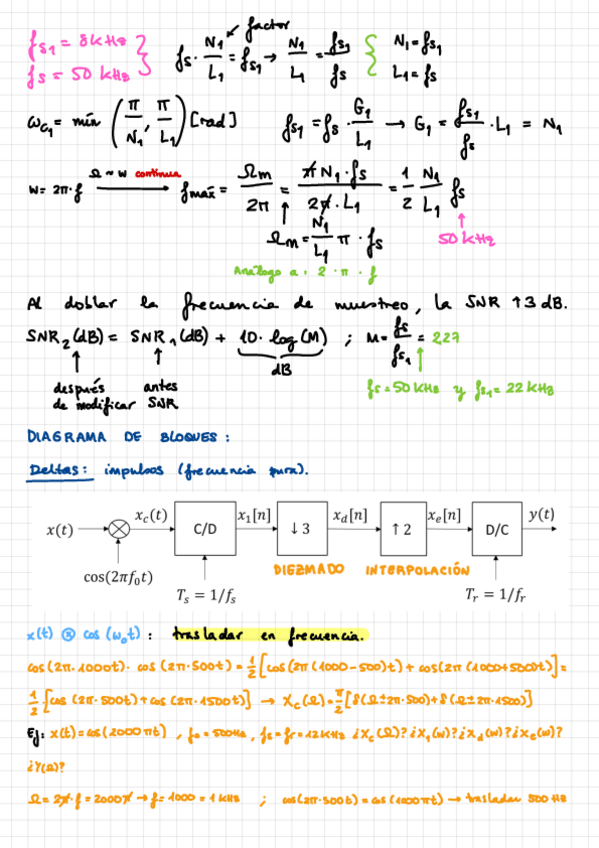 factor
fs1 = 8kHz
fs = 50 kHz
fs · N1/L1 = fs1 → N1/L1 = fs1/fs
N1 = fs1
L1 = fs
ωc1 = mín (π/N1, π/L1) [rad]
fs1 = fs · G1/L1 → G1 = fs1/fs · L1 = N1
Ω ~ w continua
w = 2π·f → fmáx = Ωm/2π = πN1·fs/2π·L1 = 1/2 N1/L1 fs
Ωm = N1/L1 π · fs
50 kHz
Análogo a: 2 · π · f
Al doblar la frecuencia de muestreo, la SNR ↑3 dB.
SNR2(dB) = SNR1(dB) + 10·log(M) ; M = fs/fs1 = 2,27
dB
después de modificar
antes SNR
fs = 50 kHz y fs1 = 22 kHz
DIAGRAMA DE BLOQUES:
Deltas: impulsos (frecuencia pura).
x(t) xc(t) C/D x1[n] ↓3 xd[n] ↑2 xe[n] D/C y(t)
DIEZMADO INTERPOLACIÓN
cos(2πf0t) Ts = 1/fs Tr = 1/fr
x(t) ⊗ cos(ω0t) : trasladar en frecuencia.
cos(2π·1000t)· cos(2π·500t) = 1/2 [cos(2π(1000-500)t) + cos(2π(1000+500)t)] =
1/2 [cos(2π·500t) + cos(2π·1500t)] → Xc(Ω) = π/2 [δ(Ω±2π·500) + δ(Ω±2π·1500)]
Ej: x(t) = cos(2000πt) , f0 = 500Hz , fs = fr = 12kHz ¿Xc(Ω)? ¿X1(ω)? ¿Xd(ω)? ¿Xe(ω)?
¿Y(Ω)?
Ω = 2π·f = 2000π → f = 1000 = 1 kHz ; cos(2π·500t) = cos(1000πt) → trasladar 500 Hz